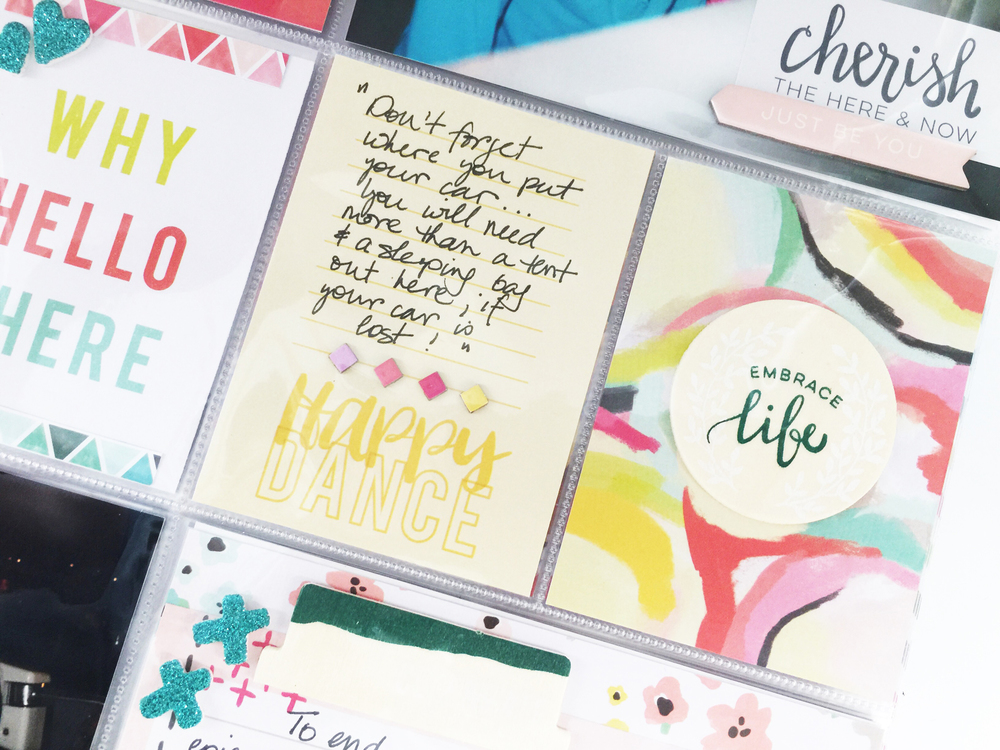 cherish
THE HERE & NOW
JUST BE YOU
WHY
HELLO
HERE
"Don't forget
where you put
your car...
you will need
more than a tent
& a sleeping bag
out here, if
your car is
lost! "
Happy
DANCE
EMBRACE
life
To end
epic